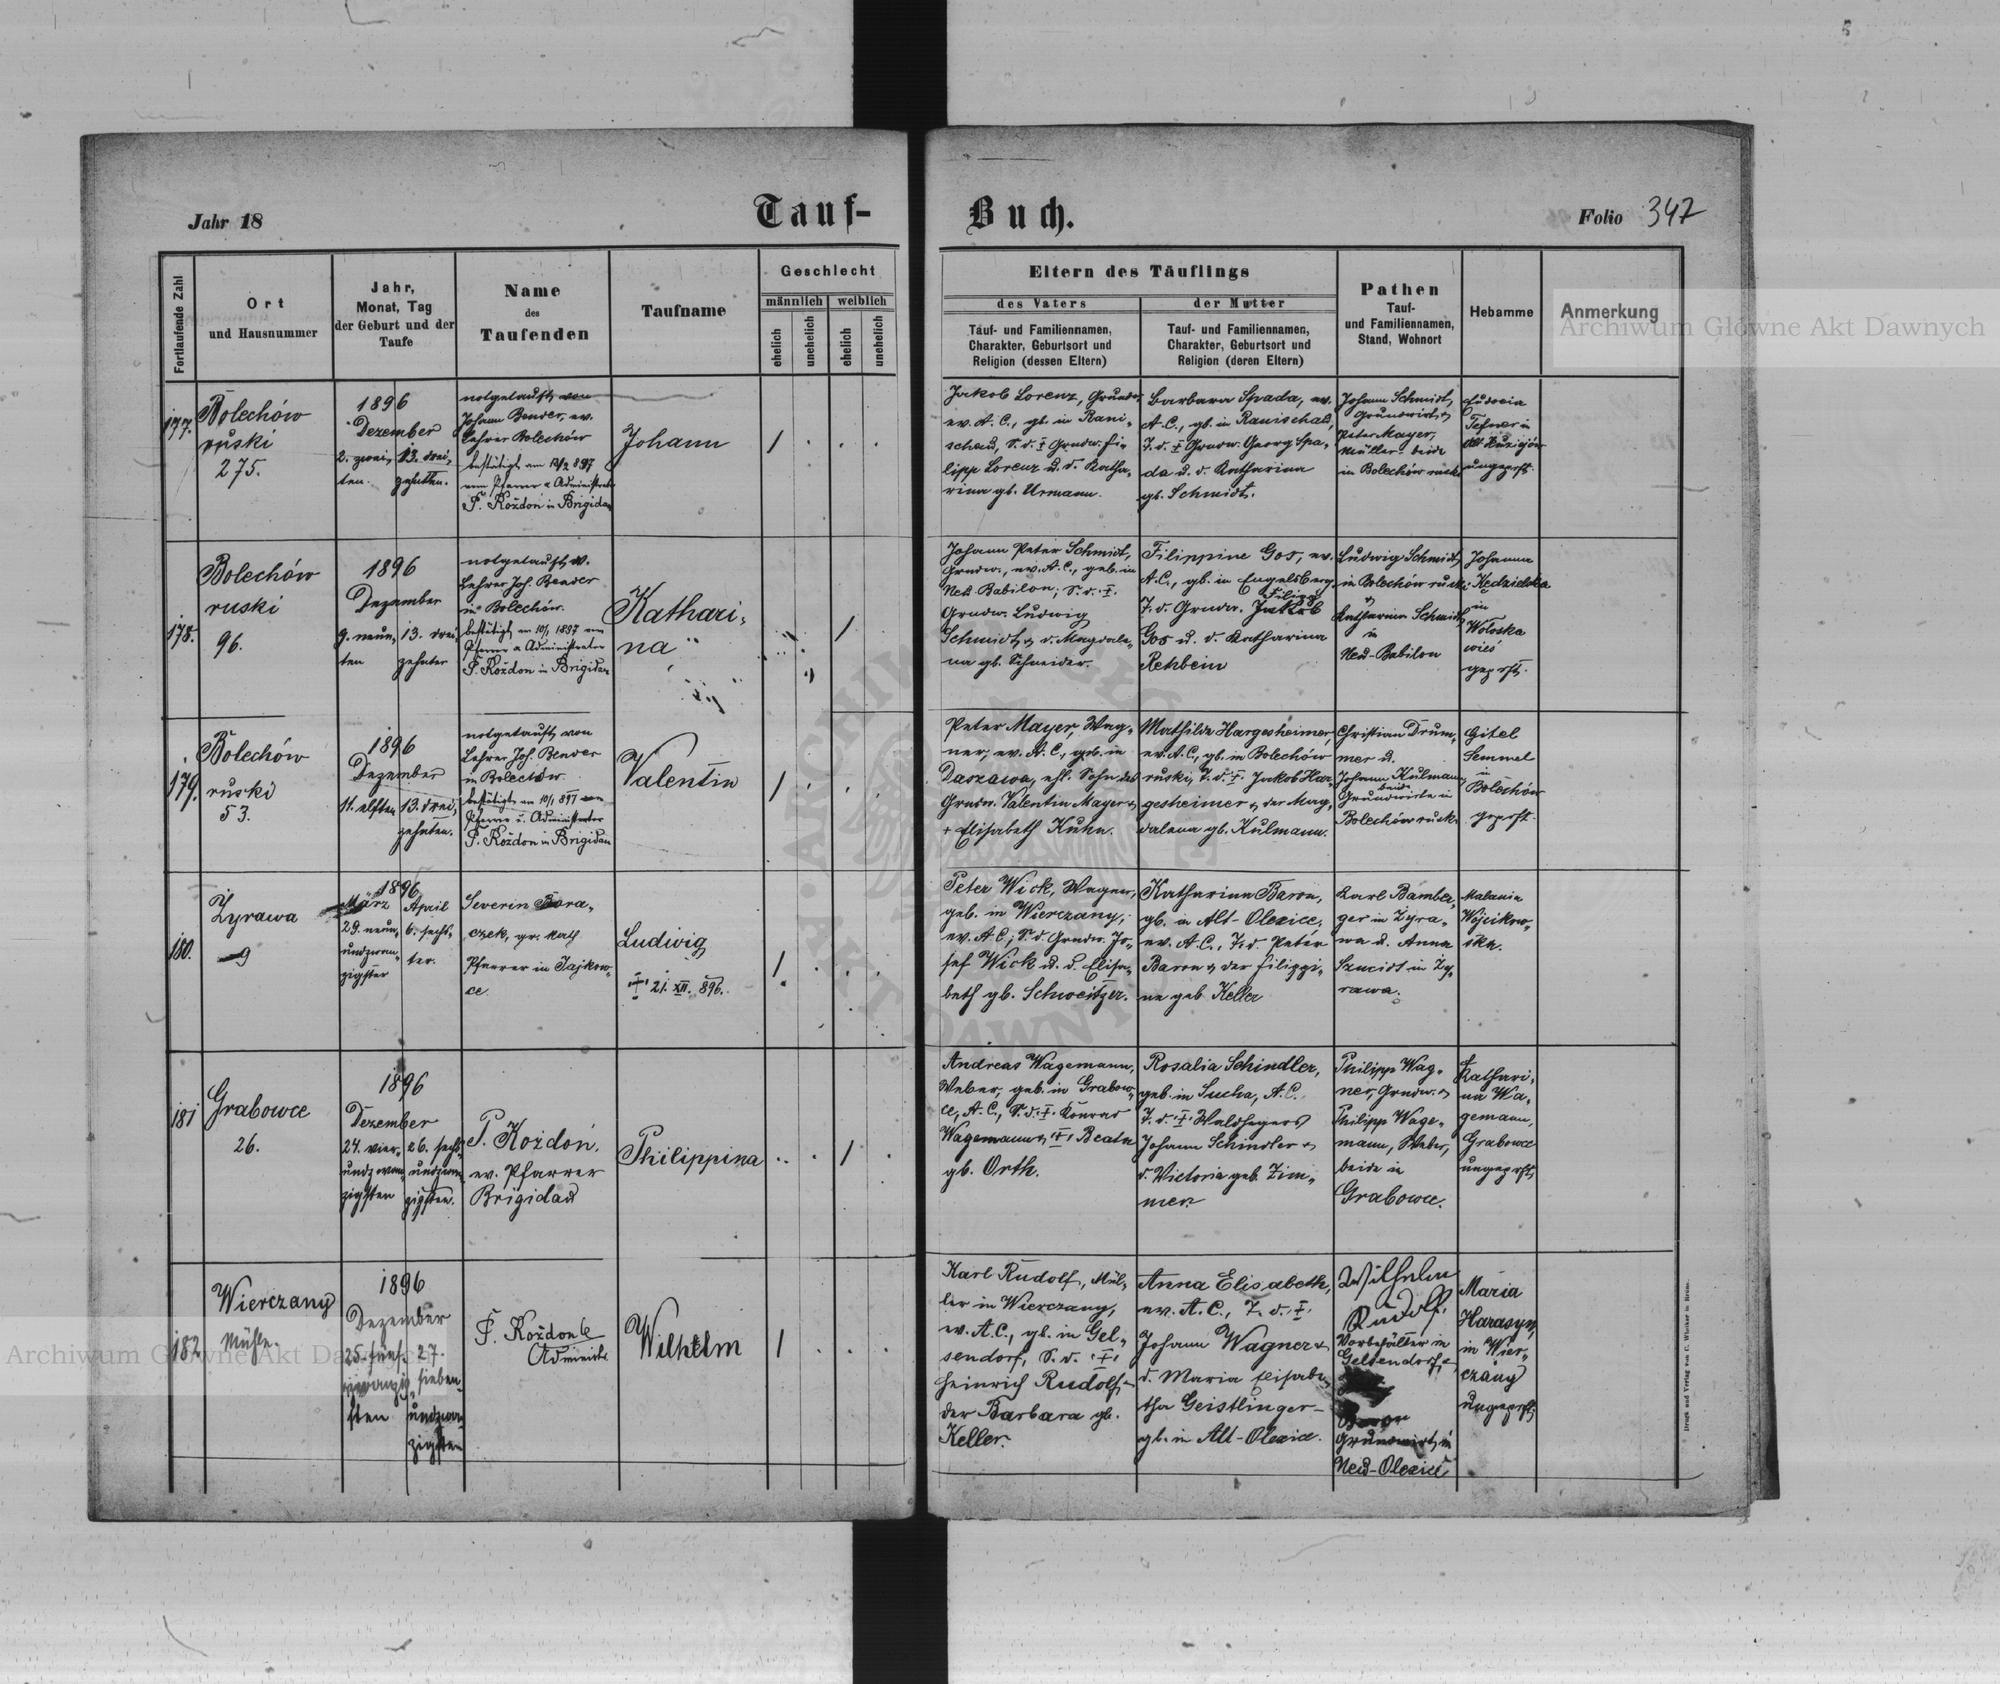 Jahr 18
Tauf-
Buch.
Folio 347
Fortlaufende Zahl
Ort
und Hausnummer
Jahr,
Monat, Tag
der Geburt und der
Taufe
Name
des
Taufenden
Taufname
Geschlecht
männlich
weiblich
ehelich
unehelich
ehelich
unehelich
Eltern des Täuflings
des Vaters
der Mutter
Tauf- und Familiennamen,
Charakter, Geburtsort und
Religion (dessen Eltern)
Tauf- und Familiennamen,
Charakter, Geburtsort und
Religion (deren Eltern)
Pathen
Tauf-
und Familiennamen,
Stand, Wohnort
Hebamme
Anmerkung
Archiwum Główne Akt Dawnych
177.
Bolechów
ruski
275.
1896
Dezember
2. zwei-
ten.
13. drei-
zehnten.
notgetauft von
Johann Bender, ev.
Lehrer Bolechów
bestätigt am
vom Pfarrer u. Administrator
P. Kożdoń in Brigidau
Johann
Jakob Lorenz, Grundw.
ev. A. C., gb. in Rani-
schau, S. d. † Grundw. Fi-
lipp Lorenz u. d. Katha-
rina gb. Urmann.
Barbara Spada, ev.
A. C., gb. in Ranischau,
T. d. † Grundw. Georg Spa-
da u. d. Katharina
gb. Schmidt.
Johann Schmidt,
Grundwirt &
Peter Mayer,
Müller beide
in Bolechów ruski
in
ungeprft.
178.
Bolechów
ruski
96.
1896
Dezember
9. neun-
ten
13. drei-
zehnter
notgetauft v.
Lehrer Joh. Bender
in Bolechów.
bestätigt am 10/1 1897 vom
Pfarrer u. Administrator
P. Kożdoń in Brigidau
Kathari-
na
Johann Peter Schmidt,
Grundw., ev. A. C., geb. in
Neu Babilon; S. d. †
Grundw. Ludwig
Schmidt & d. Magdale-
na gb. Schneider.
Filippine Gos, ev.
A. C., gb. in Engelsberg,
Filipp
T. d. Grundw. Jakob
Gos u. d. Katharina
Rehbein
Ludwig Schmidt,
in Bolechów ruski
&
Katharina Schmidt,
in
Neu-Babilon
Johanna
Kędzielska
in
Wołoska
wieś
geprft.
179.
Bolechów
ruski
53.
1896
Dezember
11. elften
13. drei-
zehnten.
notgetauft von
Lehrer Joh. Bender
in Bolechów.
bestätigt am 10/1 897 vom
Pfarrer u. Administrator
P. Kożdoń in Brigidau
Valentin
Peter Mayer, Wag-
ner, ev. A. C., geb. in
Daszawa, ehl. Sohn des
Grundw. Valentin Mayer &
† Elisabeth Kuhn.
Mathilde Hargesheimer,
ev. A. C., gb. in Bolechów
ruski, T. d. † Jakob Har-
gesheimer & der Mag-
dalena gb. Kulmann.
Christian Drum-
mer u.
Johann Kulmann,
beide
Grundwirte in
Bolechów ruski
Gitel
Semmel
in
Bolechów
geprft.
180.
Żyrawa
9
1896
März
29. neun-
undzwan-
zigster
April
6. sechs-
ter.
Severin Bora-
czek, gr. kath
Pfarrer in Jajkow-
ce
Ludwig
† 21. XII. 896.
Peter Wick, Wagner,
geb. in Wierczany,
ev. A. C.; S. d. Grundw. Jo-
sef Wick u. d. Elisa-
beth gb. Schweitzer.
Katharina Baron,
gb. in Alt-Olexice,
ev. A. C., T. d. Peter
Baron & der Filippi-
ne geb. Keller
Karl Bamber-
ger in Żyra-
wa u. Anna
Szmidt in Ży-
rawa.
Malania
Wójcikow-
ska.
181
Grabowce
26.
1896
Dezember
24. vier-
undzwan-
zigsten
26. sechs-
undzwan-
zigsten.
P. Kożdoń.
ev. Pfarrer
Brigidau
Philippina
Andreas Wagemann,
Weber, geb. in Grabow-
ce, A. C., S. d. † Konrad
Wagemann & † Beata
gb. Orth.
Rosalia Schindler,
geb. in Sucha, A. C.
T. d. † Waldhegers
Johann Schindler &
d. Victoria geb. Zim-
mer.
Philipp Wag-
ner, Grundw. &
Philipp Wage-
mann, Weber,
beide in
Grabowce.
Kathari-
na Wa-
gemann,
Grabowce
ungeprft.
182
Wierczany
Mühle.
1896
Dezember
25. fünf-
zigsten
27.
sieben-
undzwan-
zigsten
P. Kożdoń
Administr.
Wilhelm
Karl Rudolf, Mül-
ler in Wierczany,
ev. A. C., gb. in Gel-
sendorf, S. d. †
Heinrich Rudolf &
der Barbara gb.
Keller.
Anna Elisabeth,
ev. A. C., T. d. †
Johann Wagner &
d. Maria Elisabe-
tha Geistlinger-
gb. in Alt-Olexice.
Wilhelm
Rudolf,
in
Gelsendorf &
Baron
Grundwirt in
Neu-Olexice
Maria
Harasym,
in Wier-
czany
ungeprft.
Archiwum Główne Akt Dawnych